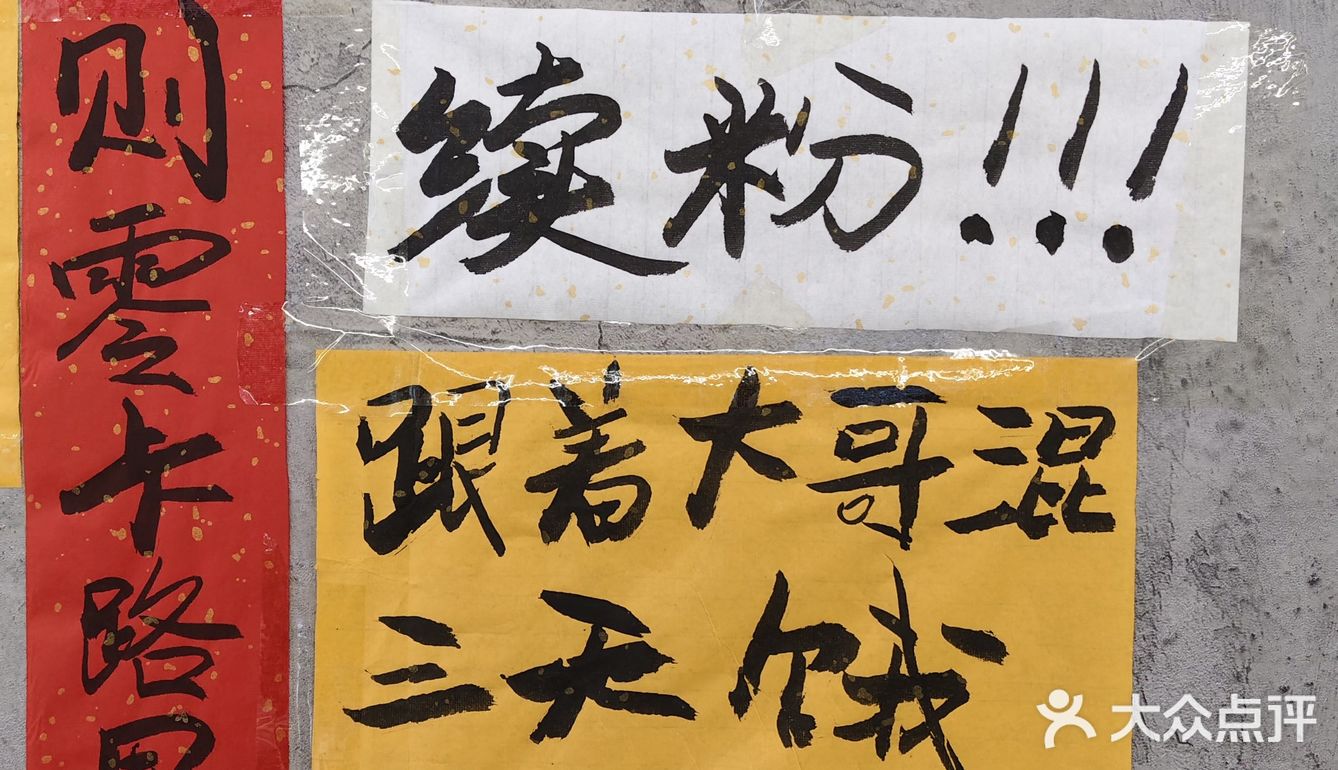 则零卡路里
续粉!!!
跟着大哥混
三天饿
大众点评